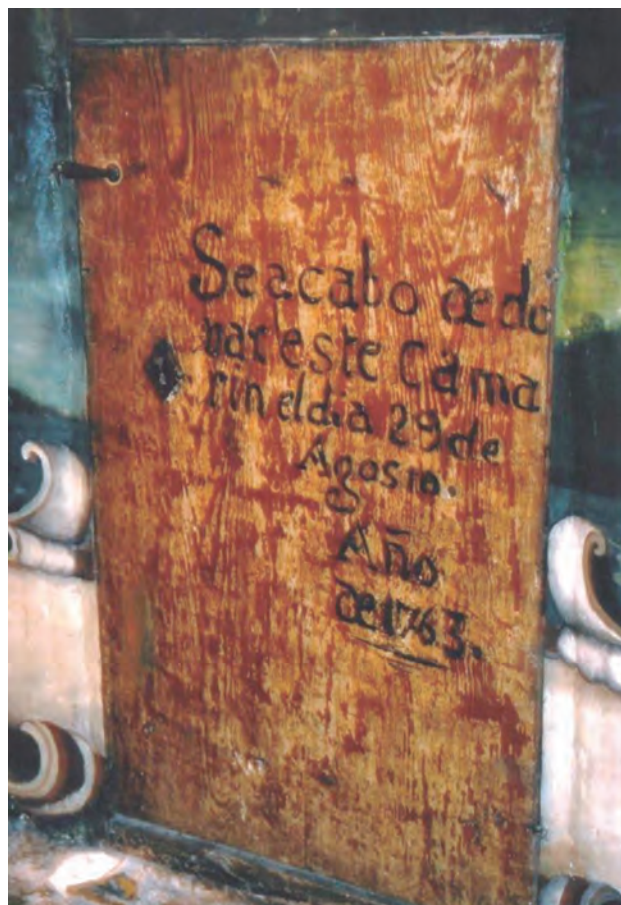 Se acabo de do
rar este Cama
rin el dia 29 de
Agosto.
Año
de 1763.